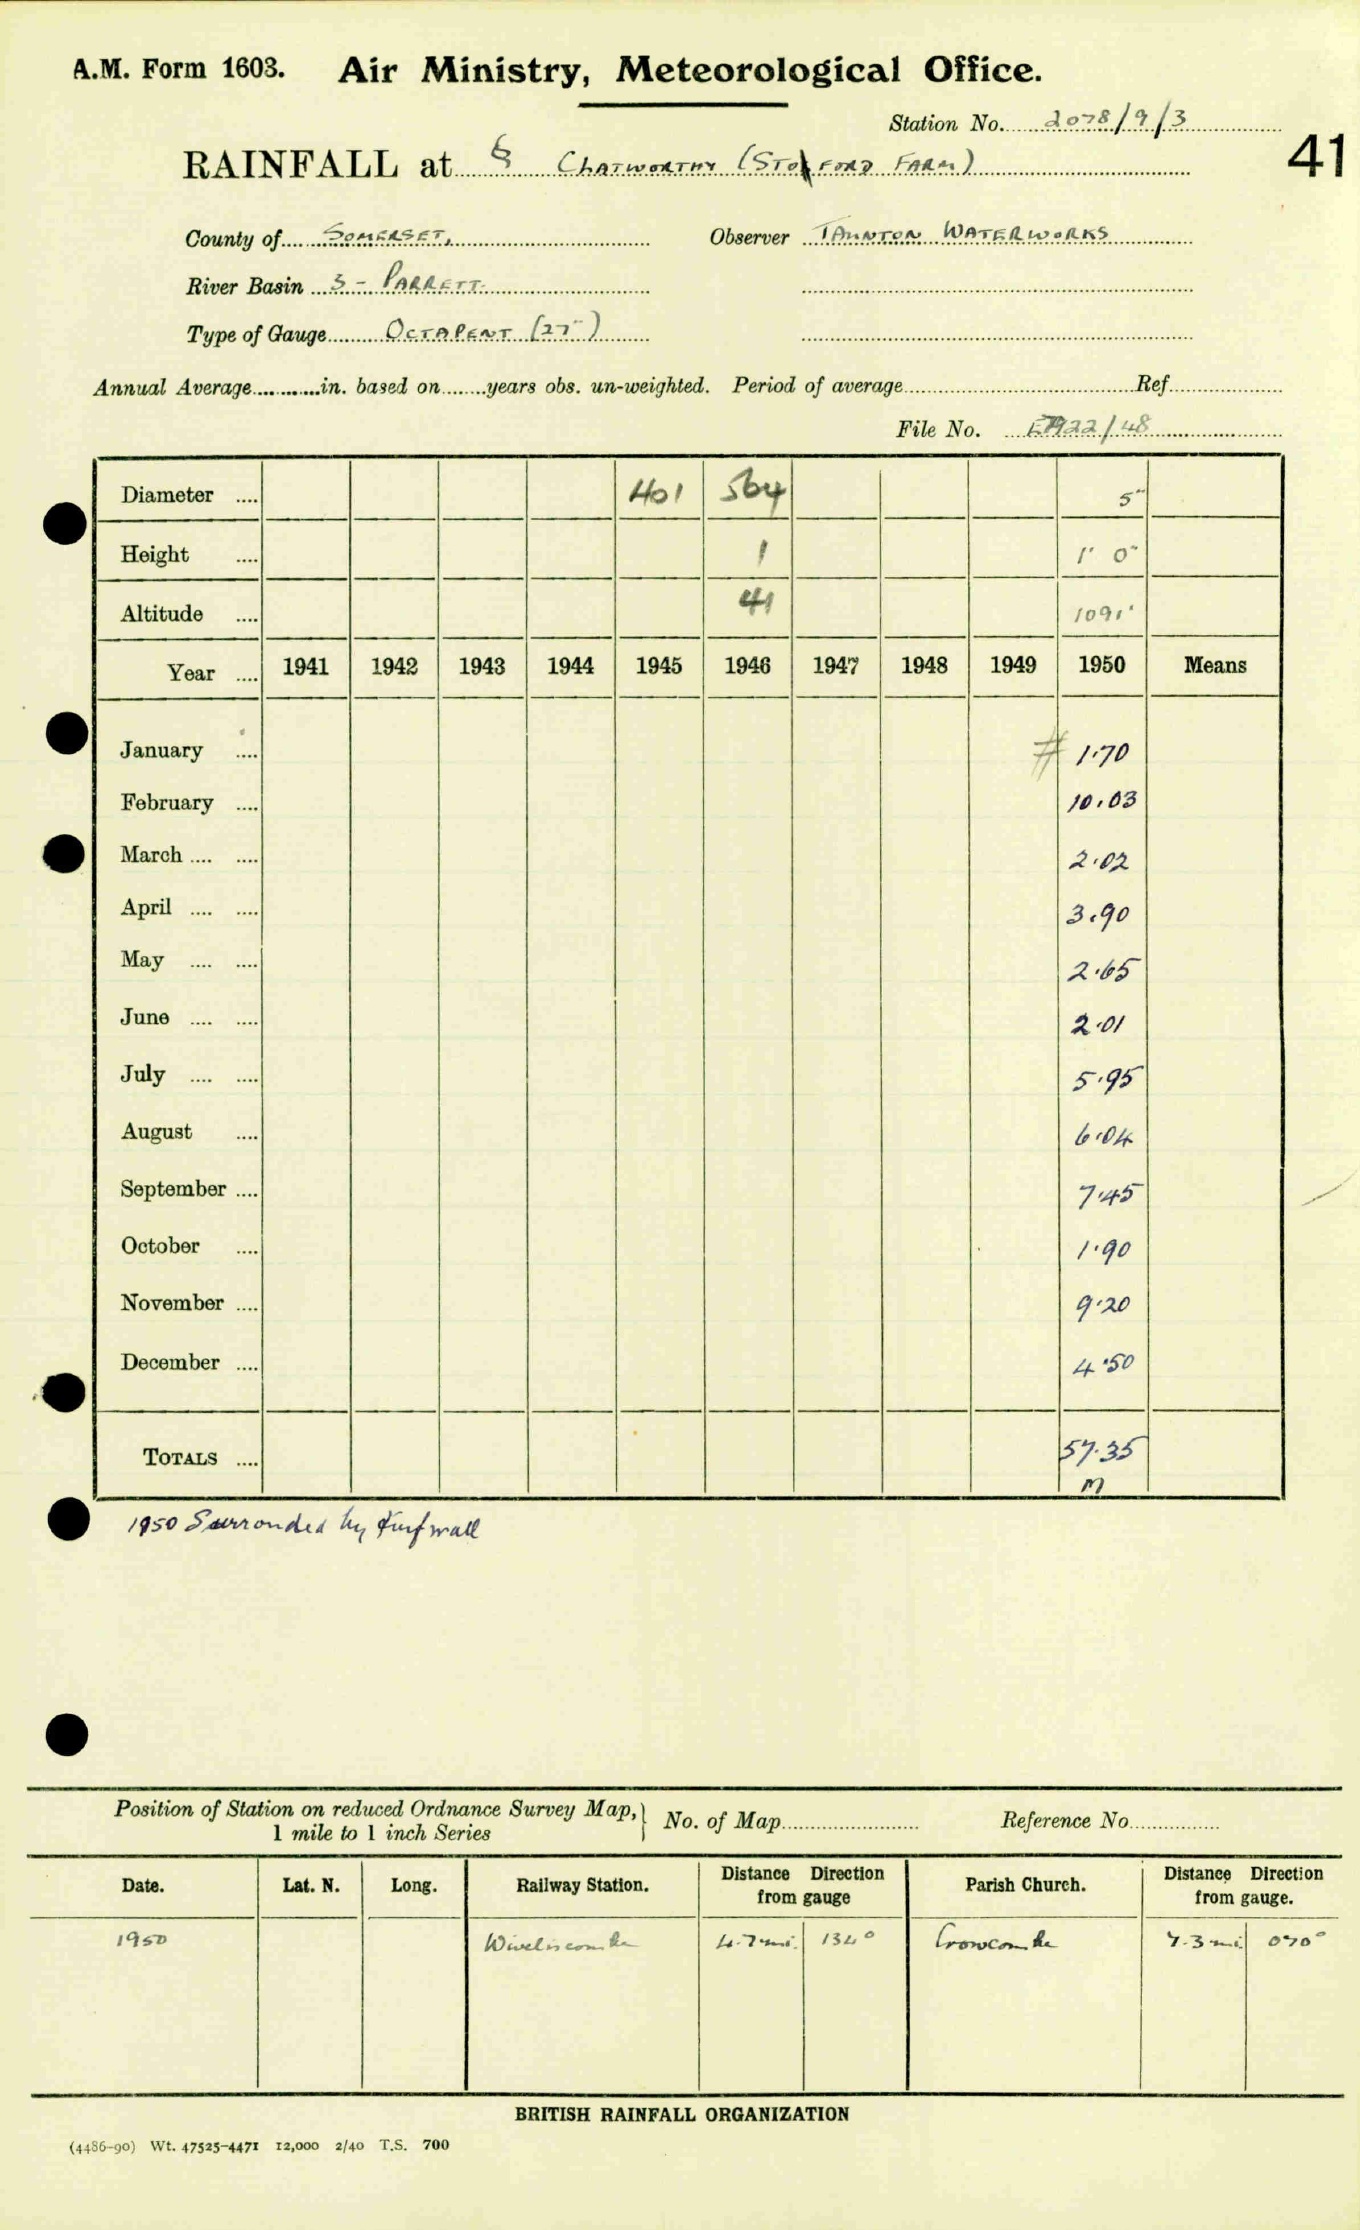 A.M. Form 1603. Air Ministry, Meteorological Office.
Station No. 2078/9/3
41
RAINFALL at § CHATWORTHY (STOFORD FARM)
County of SOMERSET, Observer TAUNTON WATERWORKS
River Basin 3 - PARRETT.
Type of Gauge OCTAPENT (27")
Annual Average in. based on years obs. un-weighted. Period of average Ref.
File No. 22/48
Diameter 401 564 5"
Height 1 1' 0"
Altitude 41 1091'
Year 1941 1942 1943 1944 1945 1946 1947 1948 1949 1950 Means
January # 1.70
February 10.03
March 2.02
April 3.90
May 2.65
June 2.01
July 5.95
August 6.04
September 7.45
October 1.90
November 9.20
December 4.50
TOTALS 57.35
M
1950 Surronded by turf wall
Position of Station on reduced Ordnance Survey Map, } No. of Map Reference No.
1 mile to 1 inch Series
Date. Lat. N. Long. Railway Station. Distance Direction from gauge Parish Church. Distance Direction from gauge.
1950 Wiveliscombe 4.7 mi. 134° Crowcombe 7.3 mi 070°
BRITISH RAINFALL ORGANIZATION
(4486-90) Wt. 47525-4471 12,000 2/40 T.S. 700